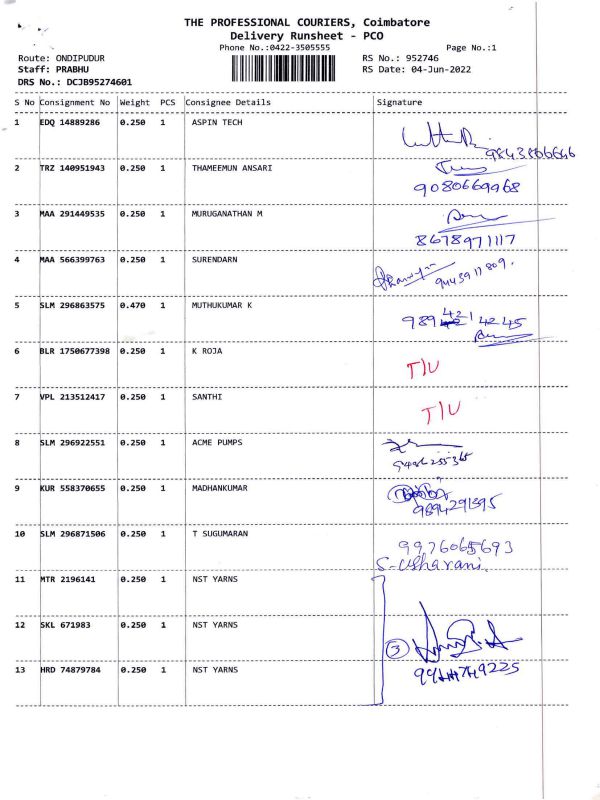 THE PROFESSIONAL COURIERS, Coimbatore
Delivery Runsheet - PCO
Phone No.:0422-3505555
Page No.:1
Route: ONDIPUDUR
RS No.: 952746
Staff: PRABHU
RS Date: 04-Jun-2022
DRS No.: DCJB95274601
S No Consignment No Weight PCS Consignee Details Signature
1 EDQ 14889286 0.250 1 ASPIN TECH
2 TRZ 140951943 0.250 1 THAMEEMUN ANSARI
9080669968
3 MAA 291449535 0.250 1 MURUGANATHAN M
8678971117
4 MAA 566399763 0.250 1 SURENDARN
9443911809.
5 SLM 296863575 0.470 1 MUTHUKUMAR K
6 BLR 1750677398 0.250 1 K ROJA
T/U
7 VPL 213512417 0.250 1 SANTHI
T/U
8 SLM 296922551 0.250 1 ACME PUMPS
9 KUR 558370655 0.250 1 MADHANKUMAR
10 SLM 296871506 0.250 1 T SUGUMARAN
9976065693
S-Usharani.
11 MTR 2196141 0.250 1 NST YARNS
12 SKL 671983 0.250 1 NST YARNS
3
13 HRD 74879784 0.250 1 NST YARNS